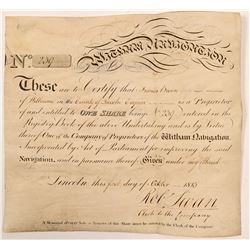 WITHAM NAVIGATION
No. 239
These are to Certify that Francis
of in the County of Lincoln is a Proprietor
of and entitled to ONE SHARE being No. 239 entered in the
Register Book of the above Undertaking and is by Virtue
thereof One of the Company of Proprietors of the Witham Navigation,
Incorporated by Act of Parliament for improving the said
Navigation, and in pursuance thereof Given under my Hand
Lincoln this first day of October
Clerk to the Company
A Memorial of every Sale or Transfer of this Share must be entered by the Clerk of the Company